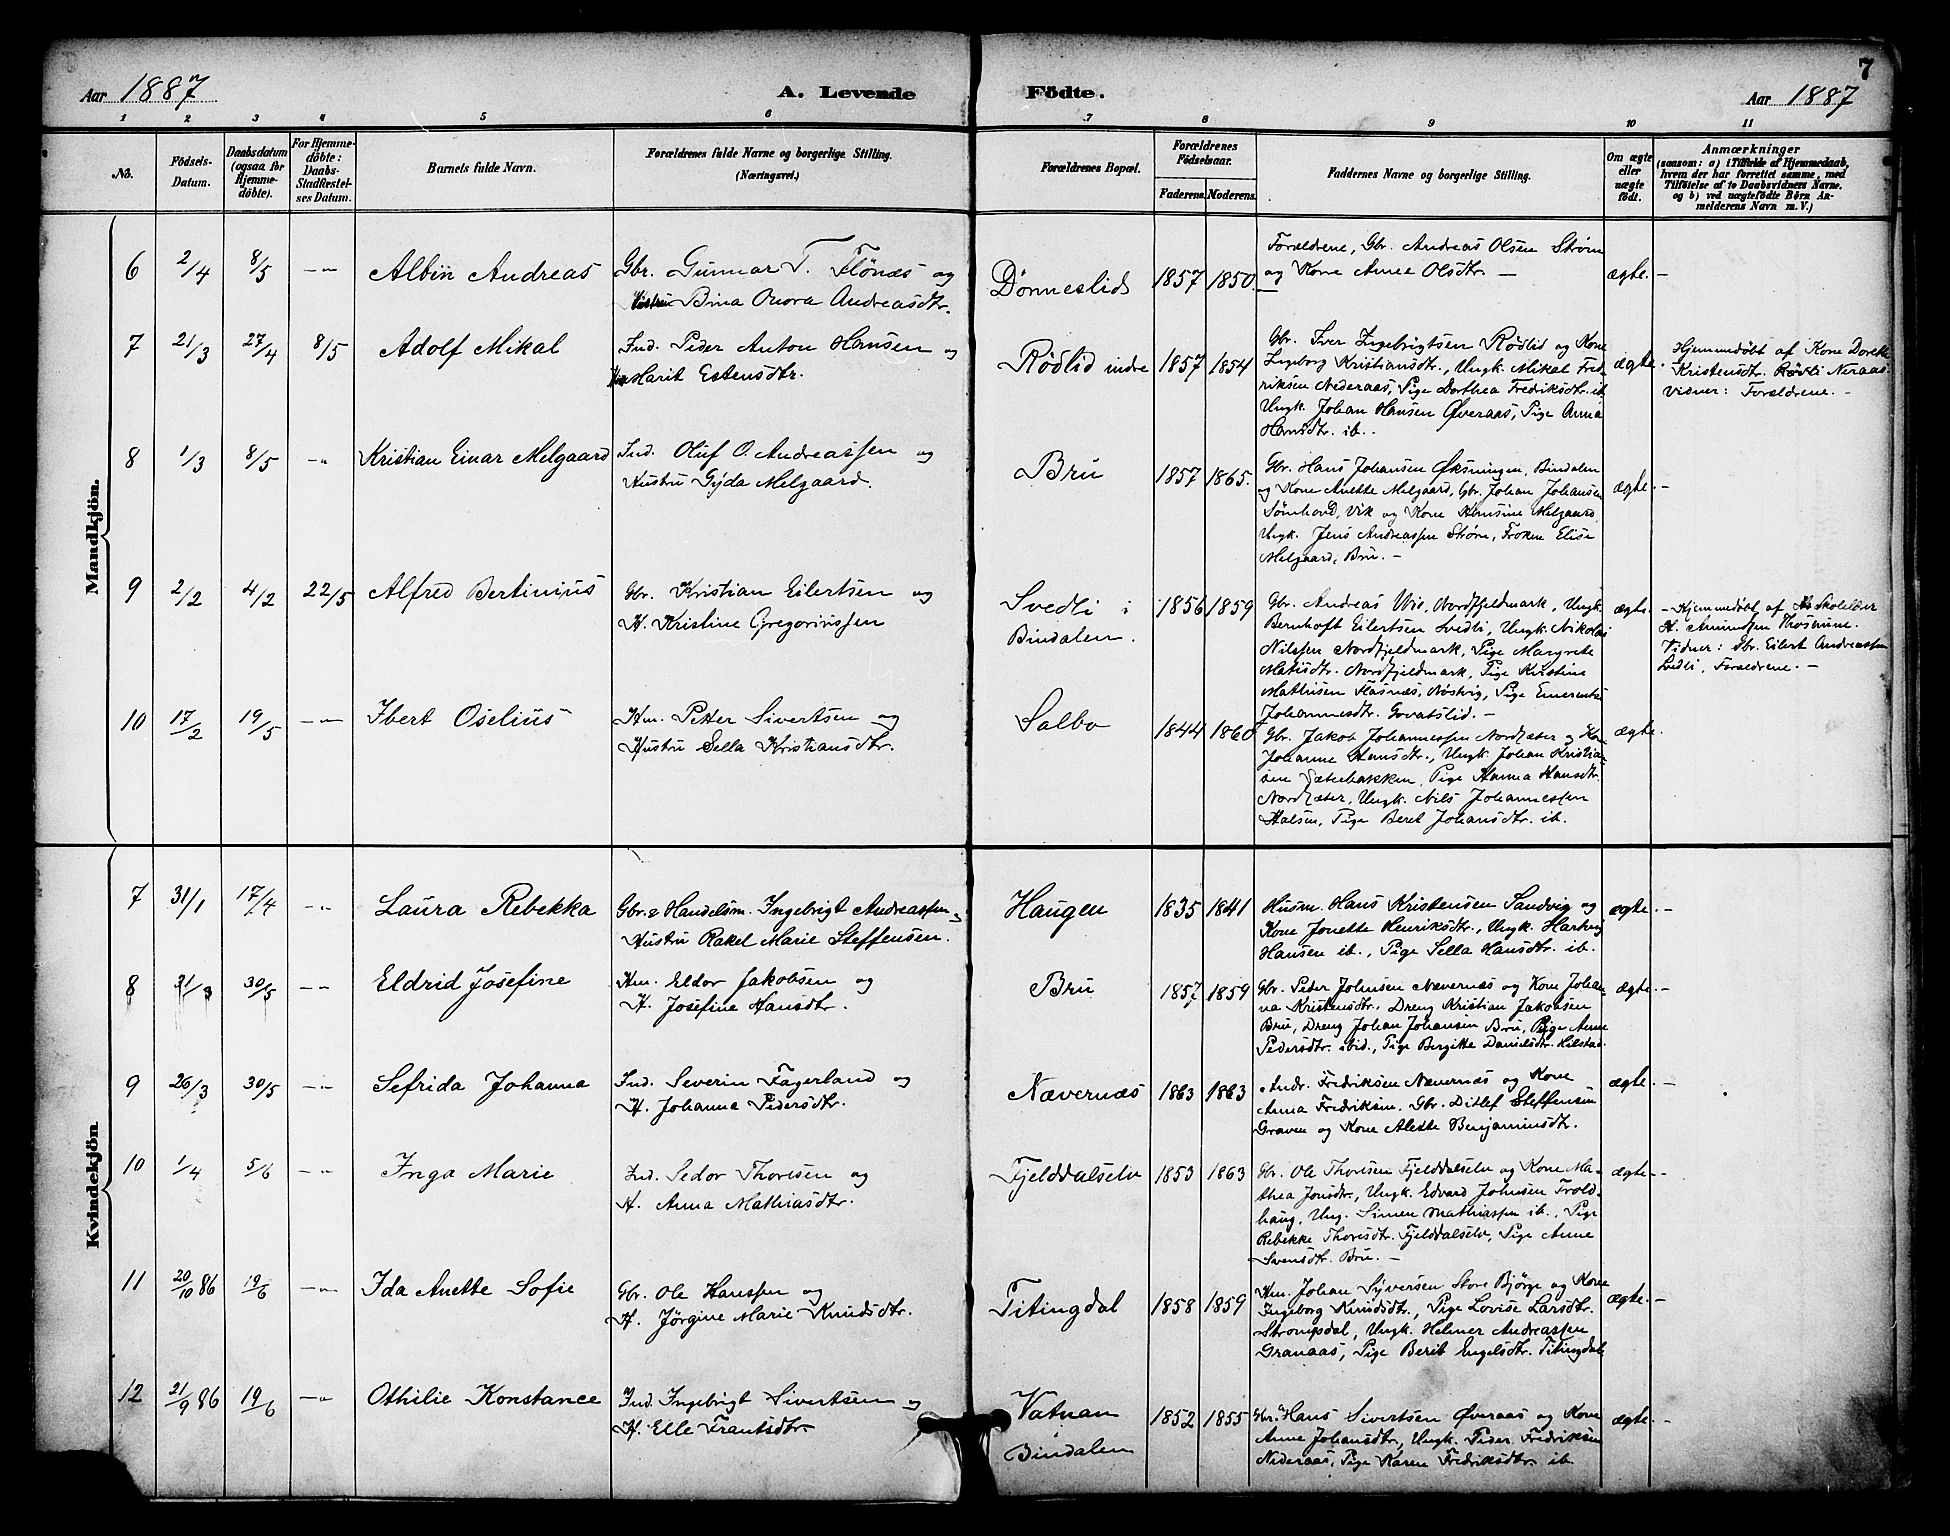 7
Aar 1887
A. Levende
Födte.
Aar 1887
1 2 3 4 5 6 7 8 9 10 11
No.
Födsels-
Datum.
Daabsdatum
(ogsaa for
Hjemme-
döbte).
For Hjemme-
döbte:
Daabs-
Stadfæstel-
ses Datum.
Barnets fulde Navn.
Forældrenes fulde Navne og borgerlige Stilling.
(Næringsvei.)
Forældrenes Bopæl.
Forældrenes
Födselsaar.
Faderens. Moderens.
Faddernes Navne og borgerlige Stilling.
Om ægte
eller
uægte
födt.
Anmærkninger
(saasom: a) i Tilfælde af Hjemmedaab,
hvem der har forrettet samme, med
Tilföielse af to Daabsvidners Navne,
og b) ved uægtefödte Börn An-
melderens Navn m. V.)
Mandkjön.
6 2/4 8/5 -"- Albin Andreas
Gbr. Gunnar T. Flönæs og
Hustru Bina Onora Andreasdtr.
Dörneslid 1857 1850.
Forældrene, Gbr. Andreas Olsen Ström
og Kone Anne Olsdtr. —
ægte. —
7 21/3 27/4 8/5 Adolf Mikal
Ind. Peder Anton Hansen og
Marit Estensdtr.
Rödlid indre 1857 1854
Gbr. Iver Ingebrigtsen Rödlid og Kone
Ingeborg Kristiansdtr., Ungk. Mikal Fred-
riksen Nederaas, Pige Dorthea Fredriksdtr. ib.
Ungk. Johan Hansen Överaas, Pige Anna
Hansdtr. ib.
ægte.
Hjemmedöbt af Kone Dorette
Kristensdtr. Neraas.
Vidner: Forældrene. -
8 1/3 8/5 -"- Kristian Einar Melgaard
Ind. Oluf O. Andreassen og
Hustru Gyda Melgaard.
Bru 1857 1865.
Gbr. Hans Johansen Öksningen, Bindalen
og Kone Anette Melgaard, Gbr. Johan Johansen
Vik og Kone Hansine Melgaard,
Ungk. Jens Andreassen Ström, Fröken Elise
Melgaard, Bru. -
ægte. -
9 2/2 4/2 22/5 Alfred Bertinius
Gbr. Kristian Eilertsen og
H. Kristine Gregoriussen
Svedli i
Bindalen.
1856 1859
Gbr. Andreas Nordfjeldmark, Ungk.
Bernhoft Eilertsen Svedli, Ungk. Nikolai
Nilssen Nordfjeldmark, Pige Margrete
Matisdtr. Nordfjeldmark, Pige Kristine
Mathisen Pige
Johannesdtr. Govatslid. -
ægte.
- Hjemmedöbt af Skolelærer
H. Amundsen
Vidner: Gbr. Eilert Andreassen
Svedli, Forældrene. -
10 17/2 19/5 -"- Ibert Oselius
Hm. Petter Sivertsen og
Hustru Sella Kristiansdtr.
Salbo 1844 1860
Gbr. Jakob Johannessen Nordsæter og Kone
Johanne Hansdtr., Ungk. Johan Kristian-
sen Sæterbakken, Pige Hanna Hansdtr.
Nordsæter, Ungk. Nils Johannessen
Halsen, Pige Beret Johansdtr. ib.
ægte.
Kvindekjön
7 31/1 17/4 -"- Laura Rebekka
Gbr. & Handelsm. Ingebrigt Andreassen og
Hustru Rakel Marie Steffensen.
Haugen 1835 1841
Husm. Hans Kristensen Sandvig og
Kone Jonette Henriksdtr., Ungk. Hartvig
Hansen ib., Pige Sella Hansdtr. ib.
ægte. -
8 31/3 30/5 -"- Eldrid Josefine
Hm. Eldor Jakobsen og
H. Josefine Hansdtr.
Bru 1857 1859
Gbr. Peder Johnsen Nævernæs og Kone Johan-
na Kristensdtr. Dreng Kristian Jakobsen
Bru, Dreng Johan Johansen Bru, Pige Anne
Pedersdtr. ibid., Pige Bergitte Danielsdtr. Hilstad.
ægte. -
9 26/3 30/5 -"- Sefrida Johanna
Ind. Severin Fagerland og
H. Johanna Pedersdtr.
Nævernæs 1863 1863
Andr. Fredriksen Nævernæs og Kone
Anna Fredriksen, Gbr. Ditlef Steffensen
Graven og Kone Alette Benjaminsdtr.
ægte. -
10 1/4 5/6 -"- Inga Marie
Ind. Sedor Thorsen og
H. Anna Mathiasdtr.
Fjelddalselv 1853 1863
Gbr. Ole Thorsen Fjelddalselv og Kone Ma-
thea Jonsdtr., Ungk. Edvard Johnsen Trold-
haug, Ung. Simen Mathiassen ib., Pige
Rebekke Thorsdtr. Fjelddalselv, Pige Anne
Svensdtr. Bru. -
ægte. -
11 20/10 86 19/6 -"- Ida Anette Sofie
Gbr. Ole Hanssen og
H. Jörgine Marie Knudsdtr.
Titingdal 1858 1859
Hm. Johan Syversen Store Bjørge og Kone
Ingeborg Knudsdtr., Pige Lovise Larsdtr.
Strompdal, Ungk. Helmer Andreassen
Granaas, Pige Berit Engelsdtr. Titingdal
ægte. -
12 21/9 86 19/6 -"- Othilie Konstance
Ind. Ingebrigt Sivertsen og
H. Elle Frantsdtr.
Vatnan
Bindalen
1852 1855
Gbr. Hans Sivertsen Överaas og Kone
Anne Johansdtr, Ungk. Peder Fredriksen
Nederaas, Pige Karen Fredriksdtr. ib.
ægte. -